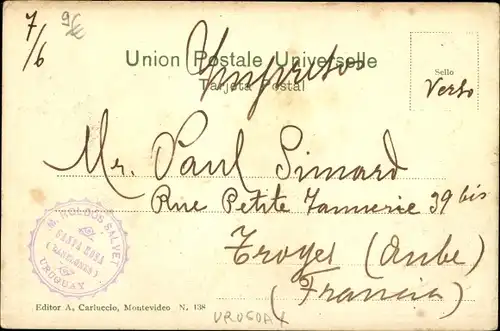 7/6
Union Postale Universelle
Tarjeta Postal
Impresos
Sello
Verso
Mr. Paul Simard
Rue Petite Tannerie 39 bis
Troyes (Aube)
(Francia)
SALVET
SANTA ROSA
(CANELONES)
URUGUAY
Editor A, Carluccio, Montevideo N. 138
URUGUAY